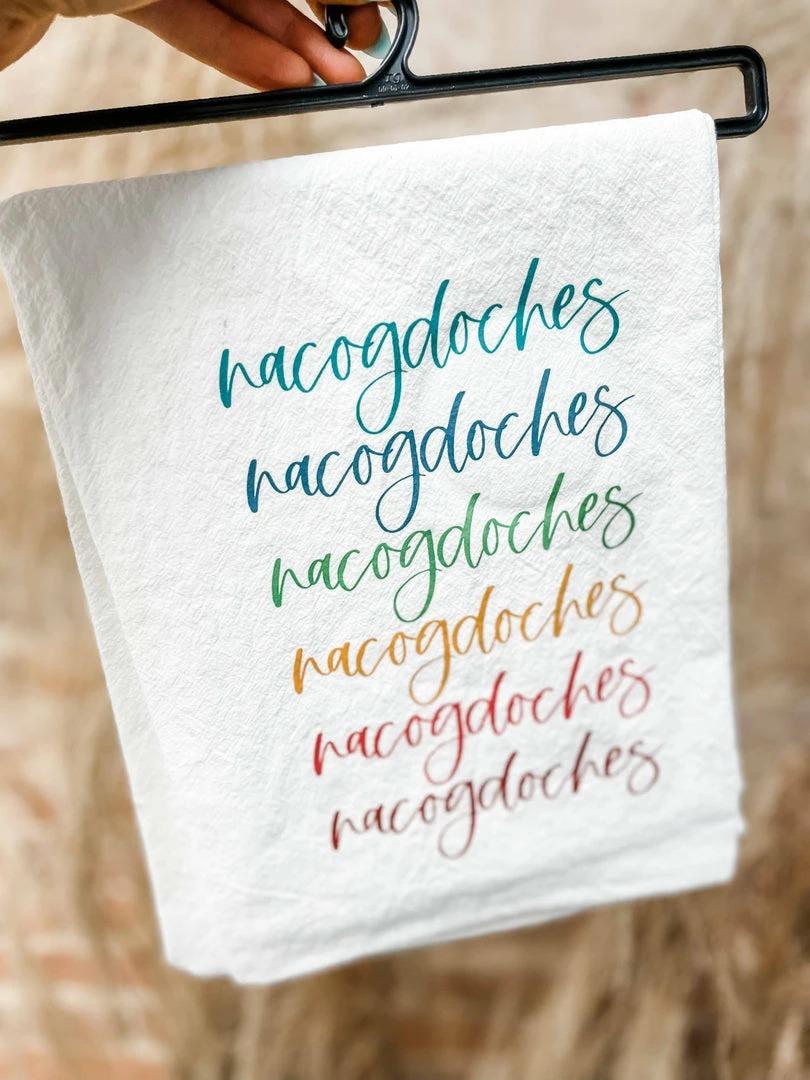 nacogdoches
nacogdoches
nacogdoches
nacogdoches
nacogdoches
nacogdoches